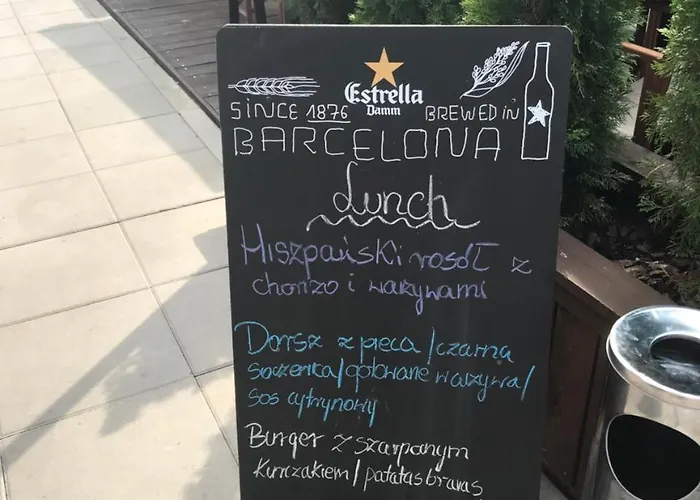 Estrella
Damm
SINCE 1876 BREWED IN
BARCELONA
Lunch
Hiszpański rosół z
chorizo i warzywami
Dorsz z pieca / czarna
soczewica / gotowane warzywa /
sos cytrynowy
Burger z szarpanym
kurczakiem / patatas bravas